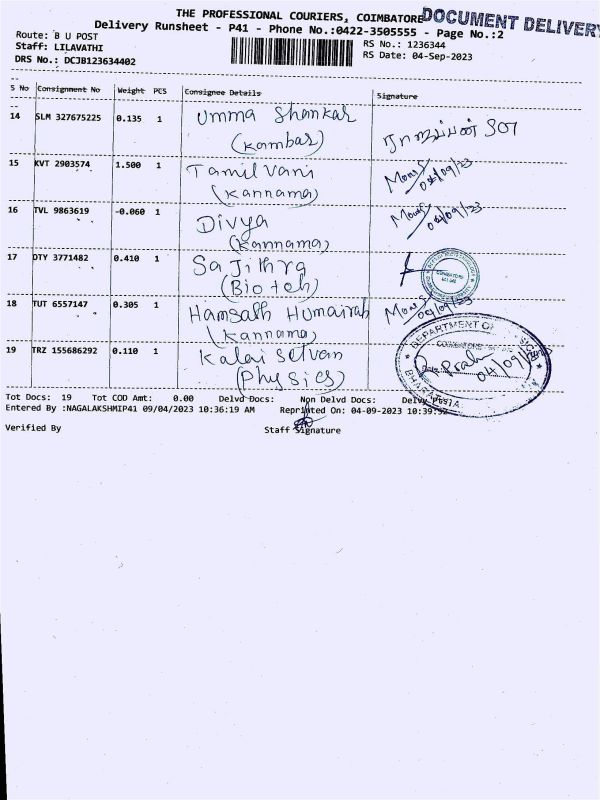 THE PROFESSIONAL COURIERS, COIMBATORE DOCUMENT DELIVERY
Delivery Runsheet - P41 - Phone No.:0422-3505555 - Page No.:2
Route: B U POST
Staff: LILAVATHI
DRS No.: DCJB123634402
RS No.: 1236344
RS Date: 04-Sep-2023
S No Consignment No Weight PCS Consignee Details Signature
14 SLM 327675225 0.135 1 Umma Shankar
(Kambar)
15 KVT 2903574 1.500 1 Tamilvani
(Kannama) 04/09/23
16 TVL 9863619 -0.060 1 Divya
(Kannama) 04/09/23
17 DTY 3771482 0.410 1 Sajithra
(Bio teh)
18 TUT 6557147 0.305 1 Hamsath Humairah
(Kannama) 04/09/23
19 TRZ 155686292 0.110 1 Kalai selvan
(Physics)
DEPARTMENT OF
04/09/
Tot Docs: 19 Tot COD Amt: 0.00 Delvd Docs: Non Delvd Docs: Delvy Pts:
Entered By :NAGALAKSHMIP41 09/04/2023 10:36:19 AM Reprinted On: 04-09-2023
Verified By Staff Signature